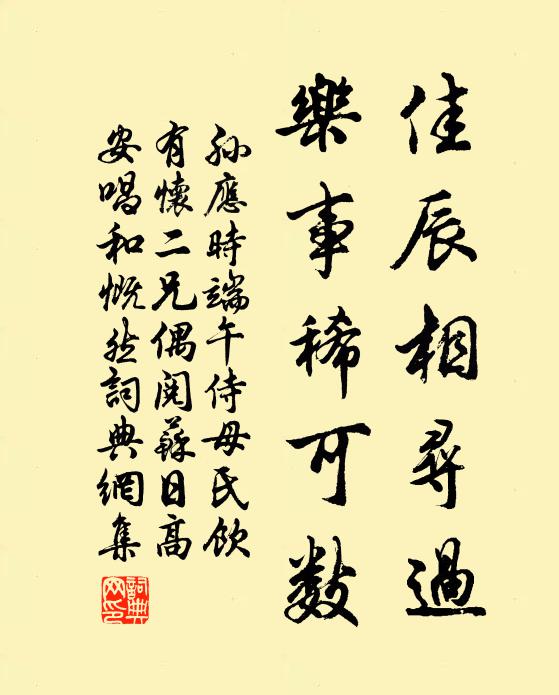 佳辰相尋過
樂事稀可數
孙應時端午侍母氏飲
有懷二兄偶閱蘇日高
安唱和慨然詞典網集
詞典
网印